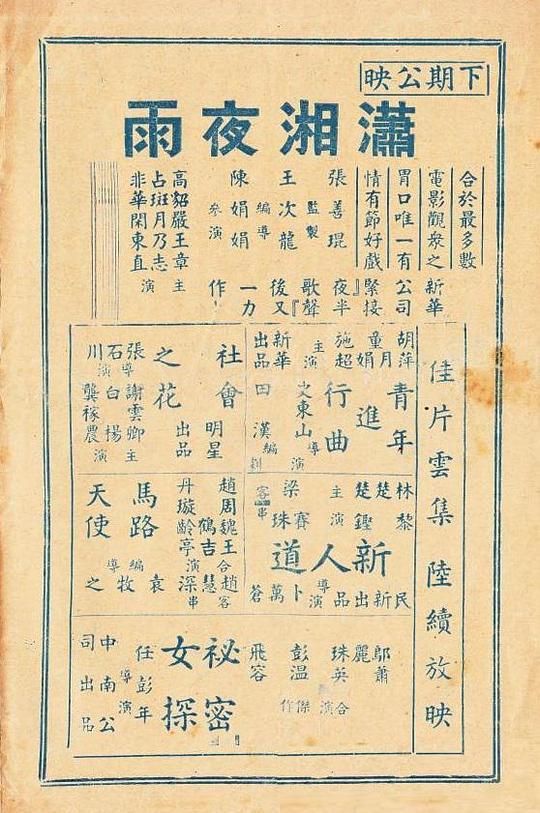 下期公映
瀟湘夜雨
合於最多數
電影觀眾之
胃口唯一有
情有節好戲
張善琨
監製
王次龍
編導
陳娟娟
參演
高貂嚴王章
占斑月乃志
非華閑東直
主演
新華
公司
緊接
『夜半
歌聲』
後又
一力
作
佳片雲集 陸續放映
青年
進
行曲
胡萍
童月娟
施超
主演
新華
出品
史東山
導演
田漢
編劇
社會
之花
明星
出品
張石川
導演
謝雲卿
白楊
龔稼農
主演
新人道
林楚楚
黎鏗
主演
梁賽珠
客串
民新出品
卜萬蒼
導演
馬路
天使
趙丹
周璇
魏鶴齡
王吉亭
合演
趙慧深
客串
袁牧之
編導
祕密
女探
鄔麗珠
蕭英
合演
彭飛
溫容
傑作
任彭年
導演
中南公司出品